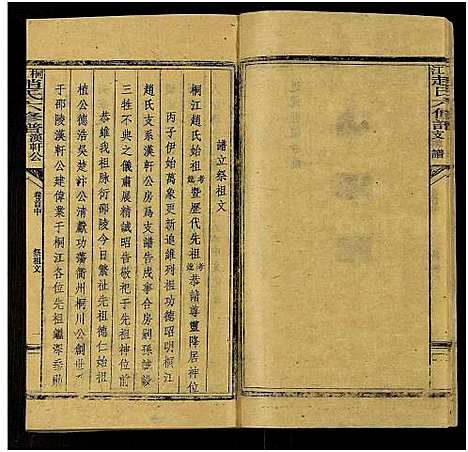 江趙氏六修譜支譜
譜立祭祖文
桐江趙氏始祖考妣暨歷代先祖考妣恭請尊靈降居神位
丙子伊始萬象更新追維列祖功德昭明桐江
趙氏支系漢軒公房爲支譜告成事合房嗣孫誠
三牲不典之儀肅展精誠昭告敬祀于先祖神位前
恭維我祖脉衍邵陵今日繁祉先祖德仁始祖
植公德浩吳楚汴公清獻功藩衢州桐川公創
于邵陵漢軒公建偉業于桐江各位先祖繼
桐趙氏六修譜漢軒公
卷首中
祭祖文